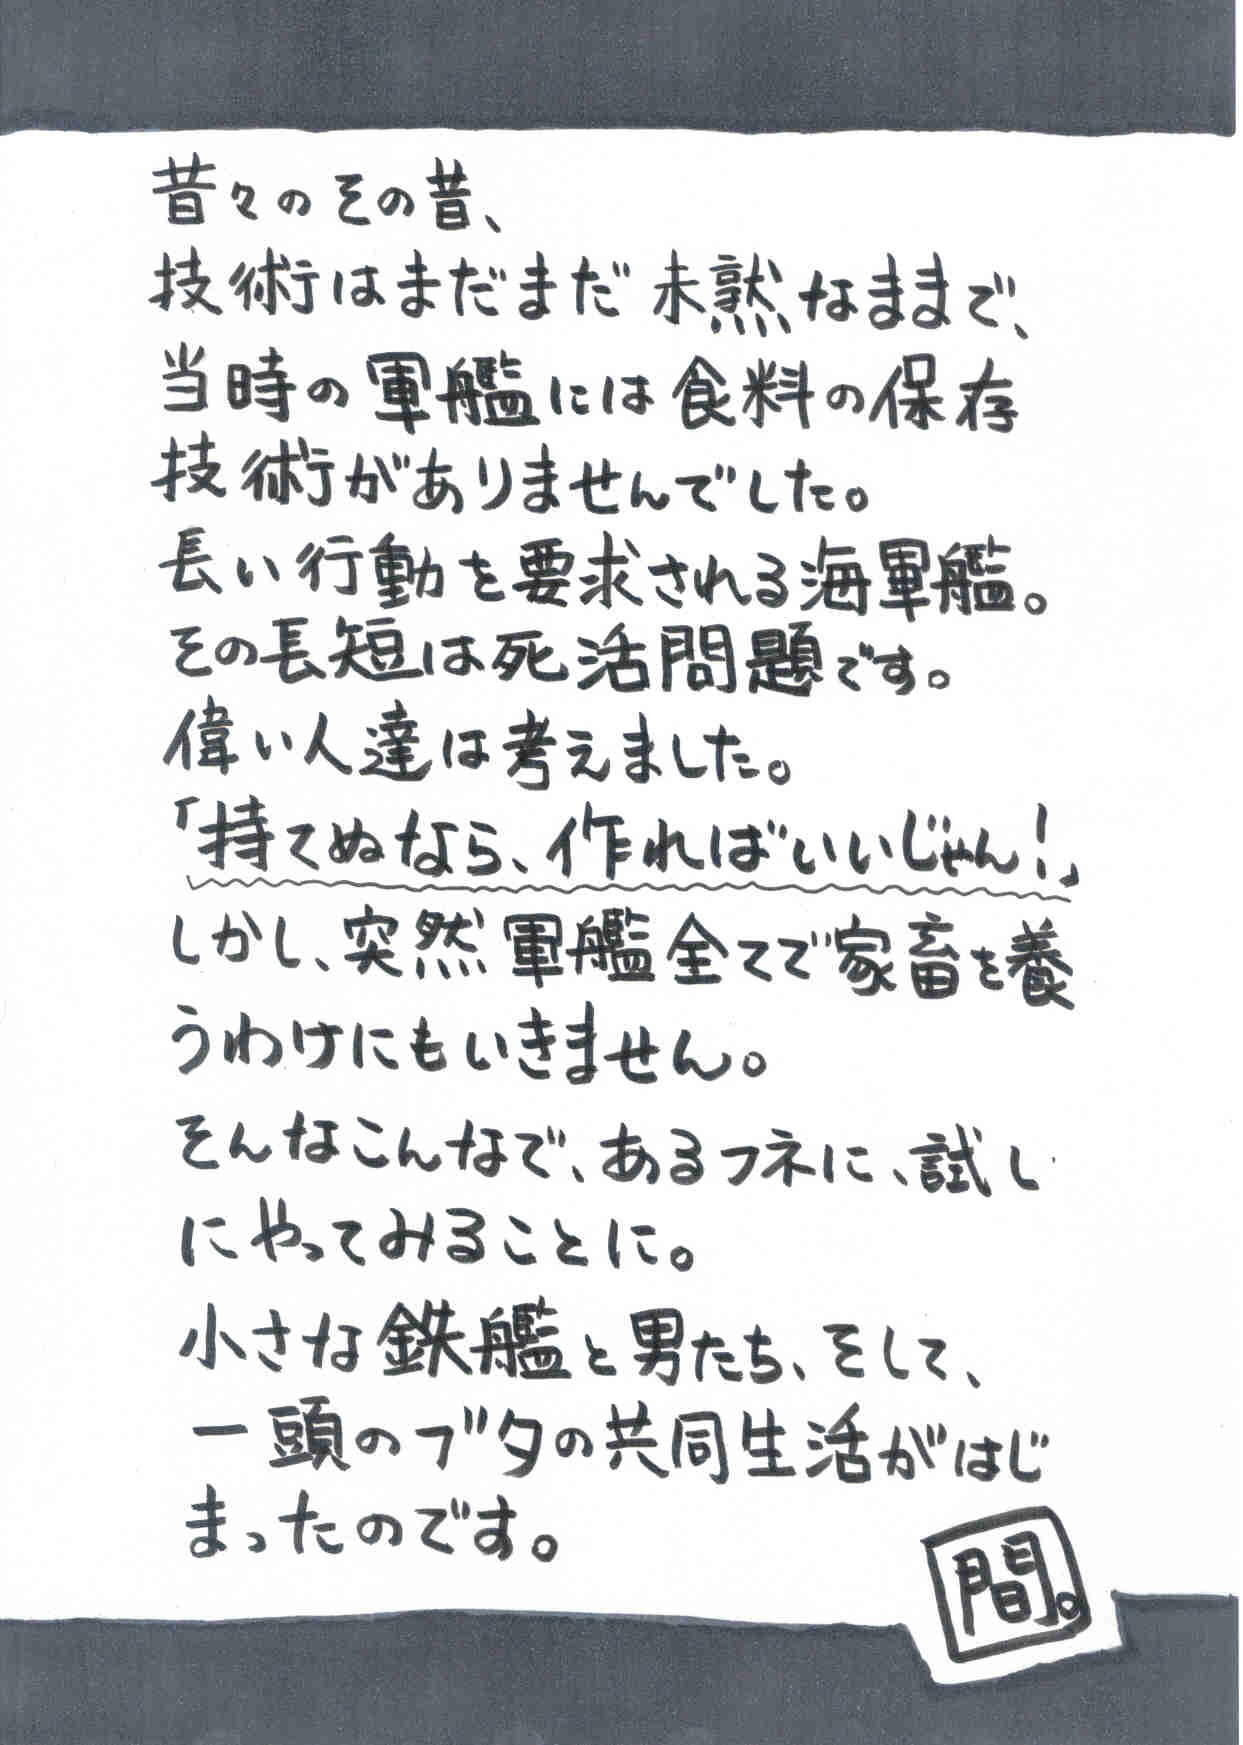 昔々のその昔、
技術はまだまだ未熟なままで、
当時の軍艦には食料の保存
技術がありませんでした。
長い行動を要求される海軍艦。
その長短は死活問題です。
偉い人達は考えました。
「持てぬなら、作ればいいじゃん!」
しかし、突然軍艦全てで家畜を養
うわけにもいきません。
そんなこんなで、あるフネに、試し
にやってみることに。
小さな鉄艦と男たち、そして、
一頭のブタの共同生活がはじ
まったのです。
間。